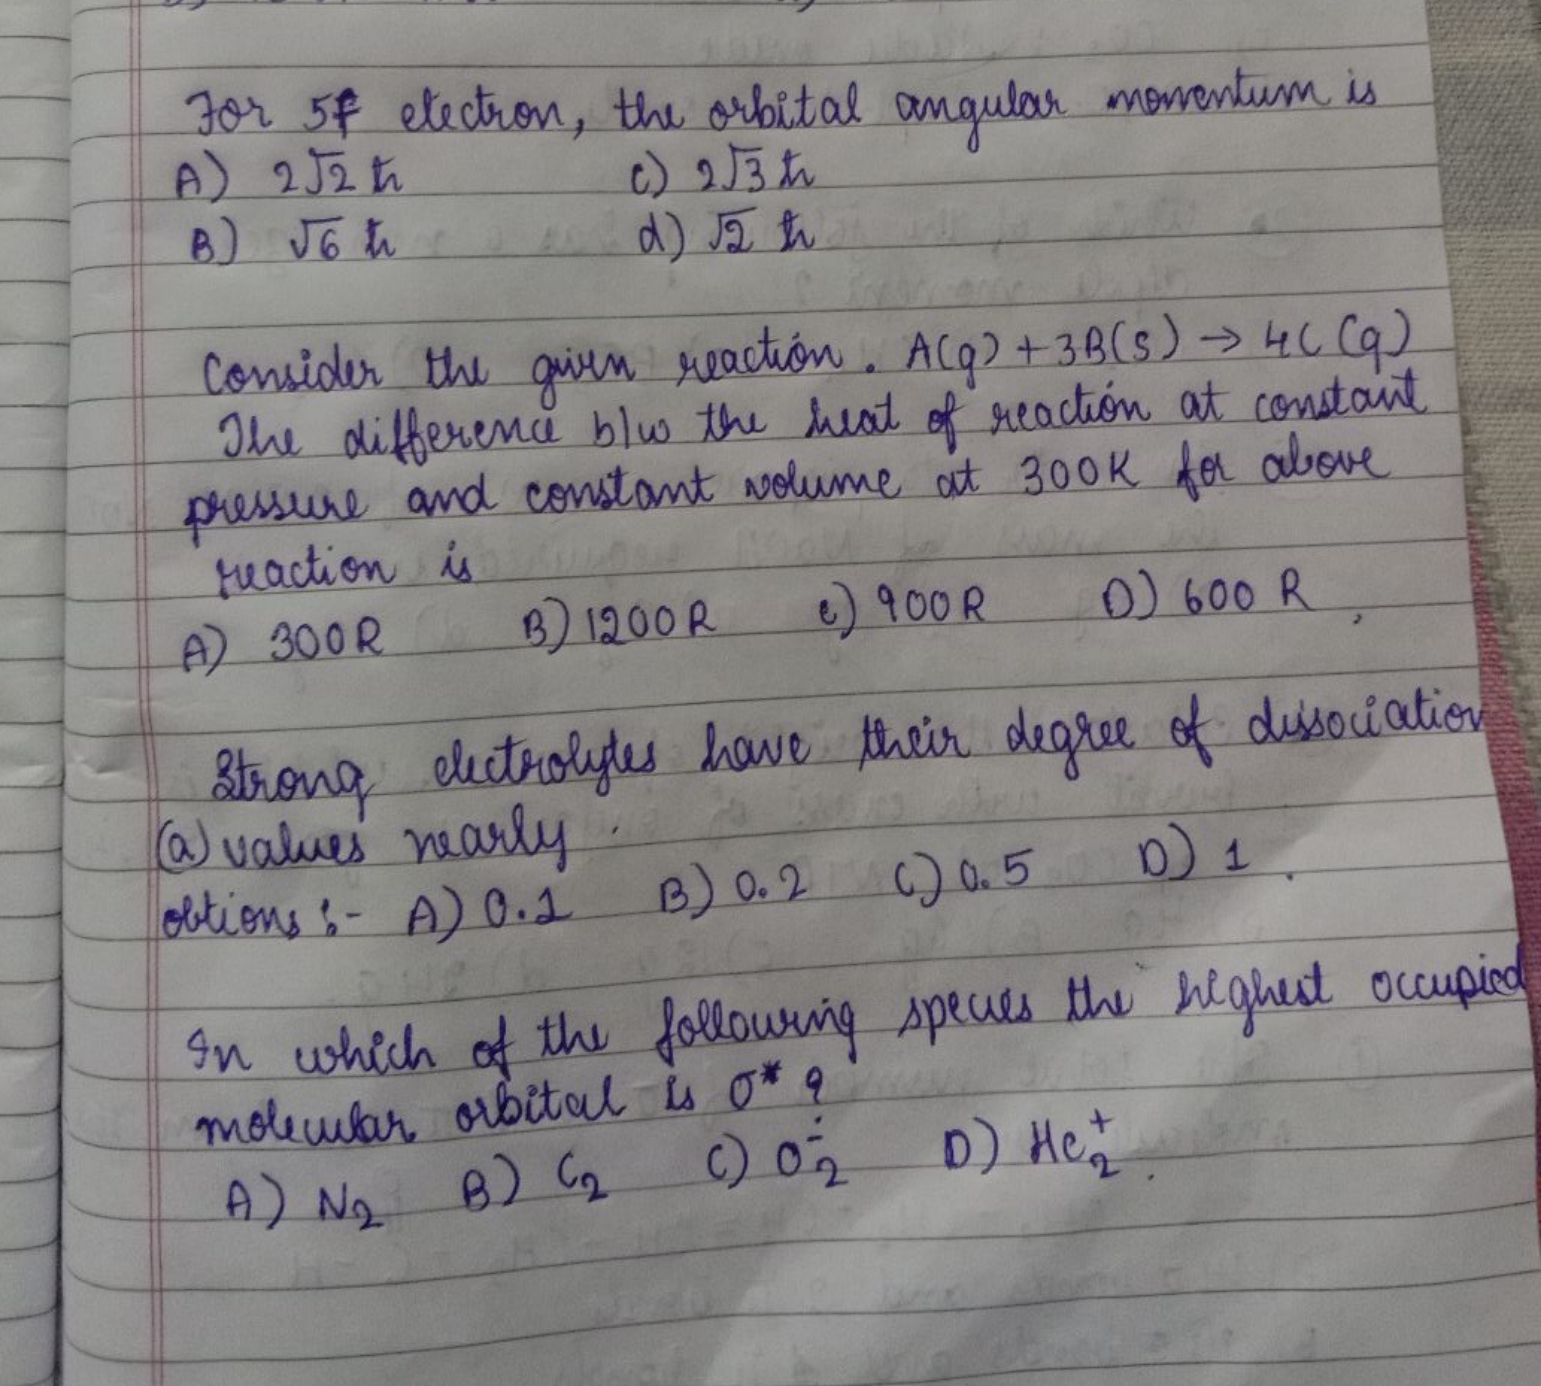 For 5f electron, the orbital angular momentum is
A) 2√2 ħ C) 2√3 ħ
B) √6 ħ d) √2 ħ
Consider the given reaction. A(g) + 3B(s) → 4C (g)
The difference b/w the heat of reaction at constant
pressure and constant volume at 300K for above
reaction is
A) 300R B) 1200R C) 900R D) 600 R
Strong electrolytes have their degree of dissociation
(a) values nearly.
obtions :- A) 0.1 B) 0.2 C) 0.5 D) 1.
In which of the following species the highest occupied
molecular orbital is σ* ?
A) N₂ B) C₂ C) O₂⁻ D) He₂⁺.